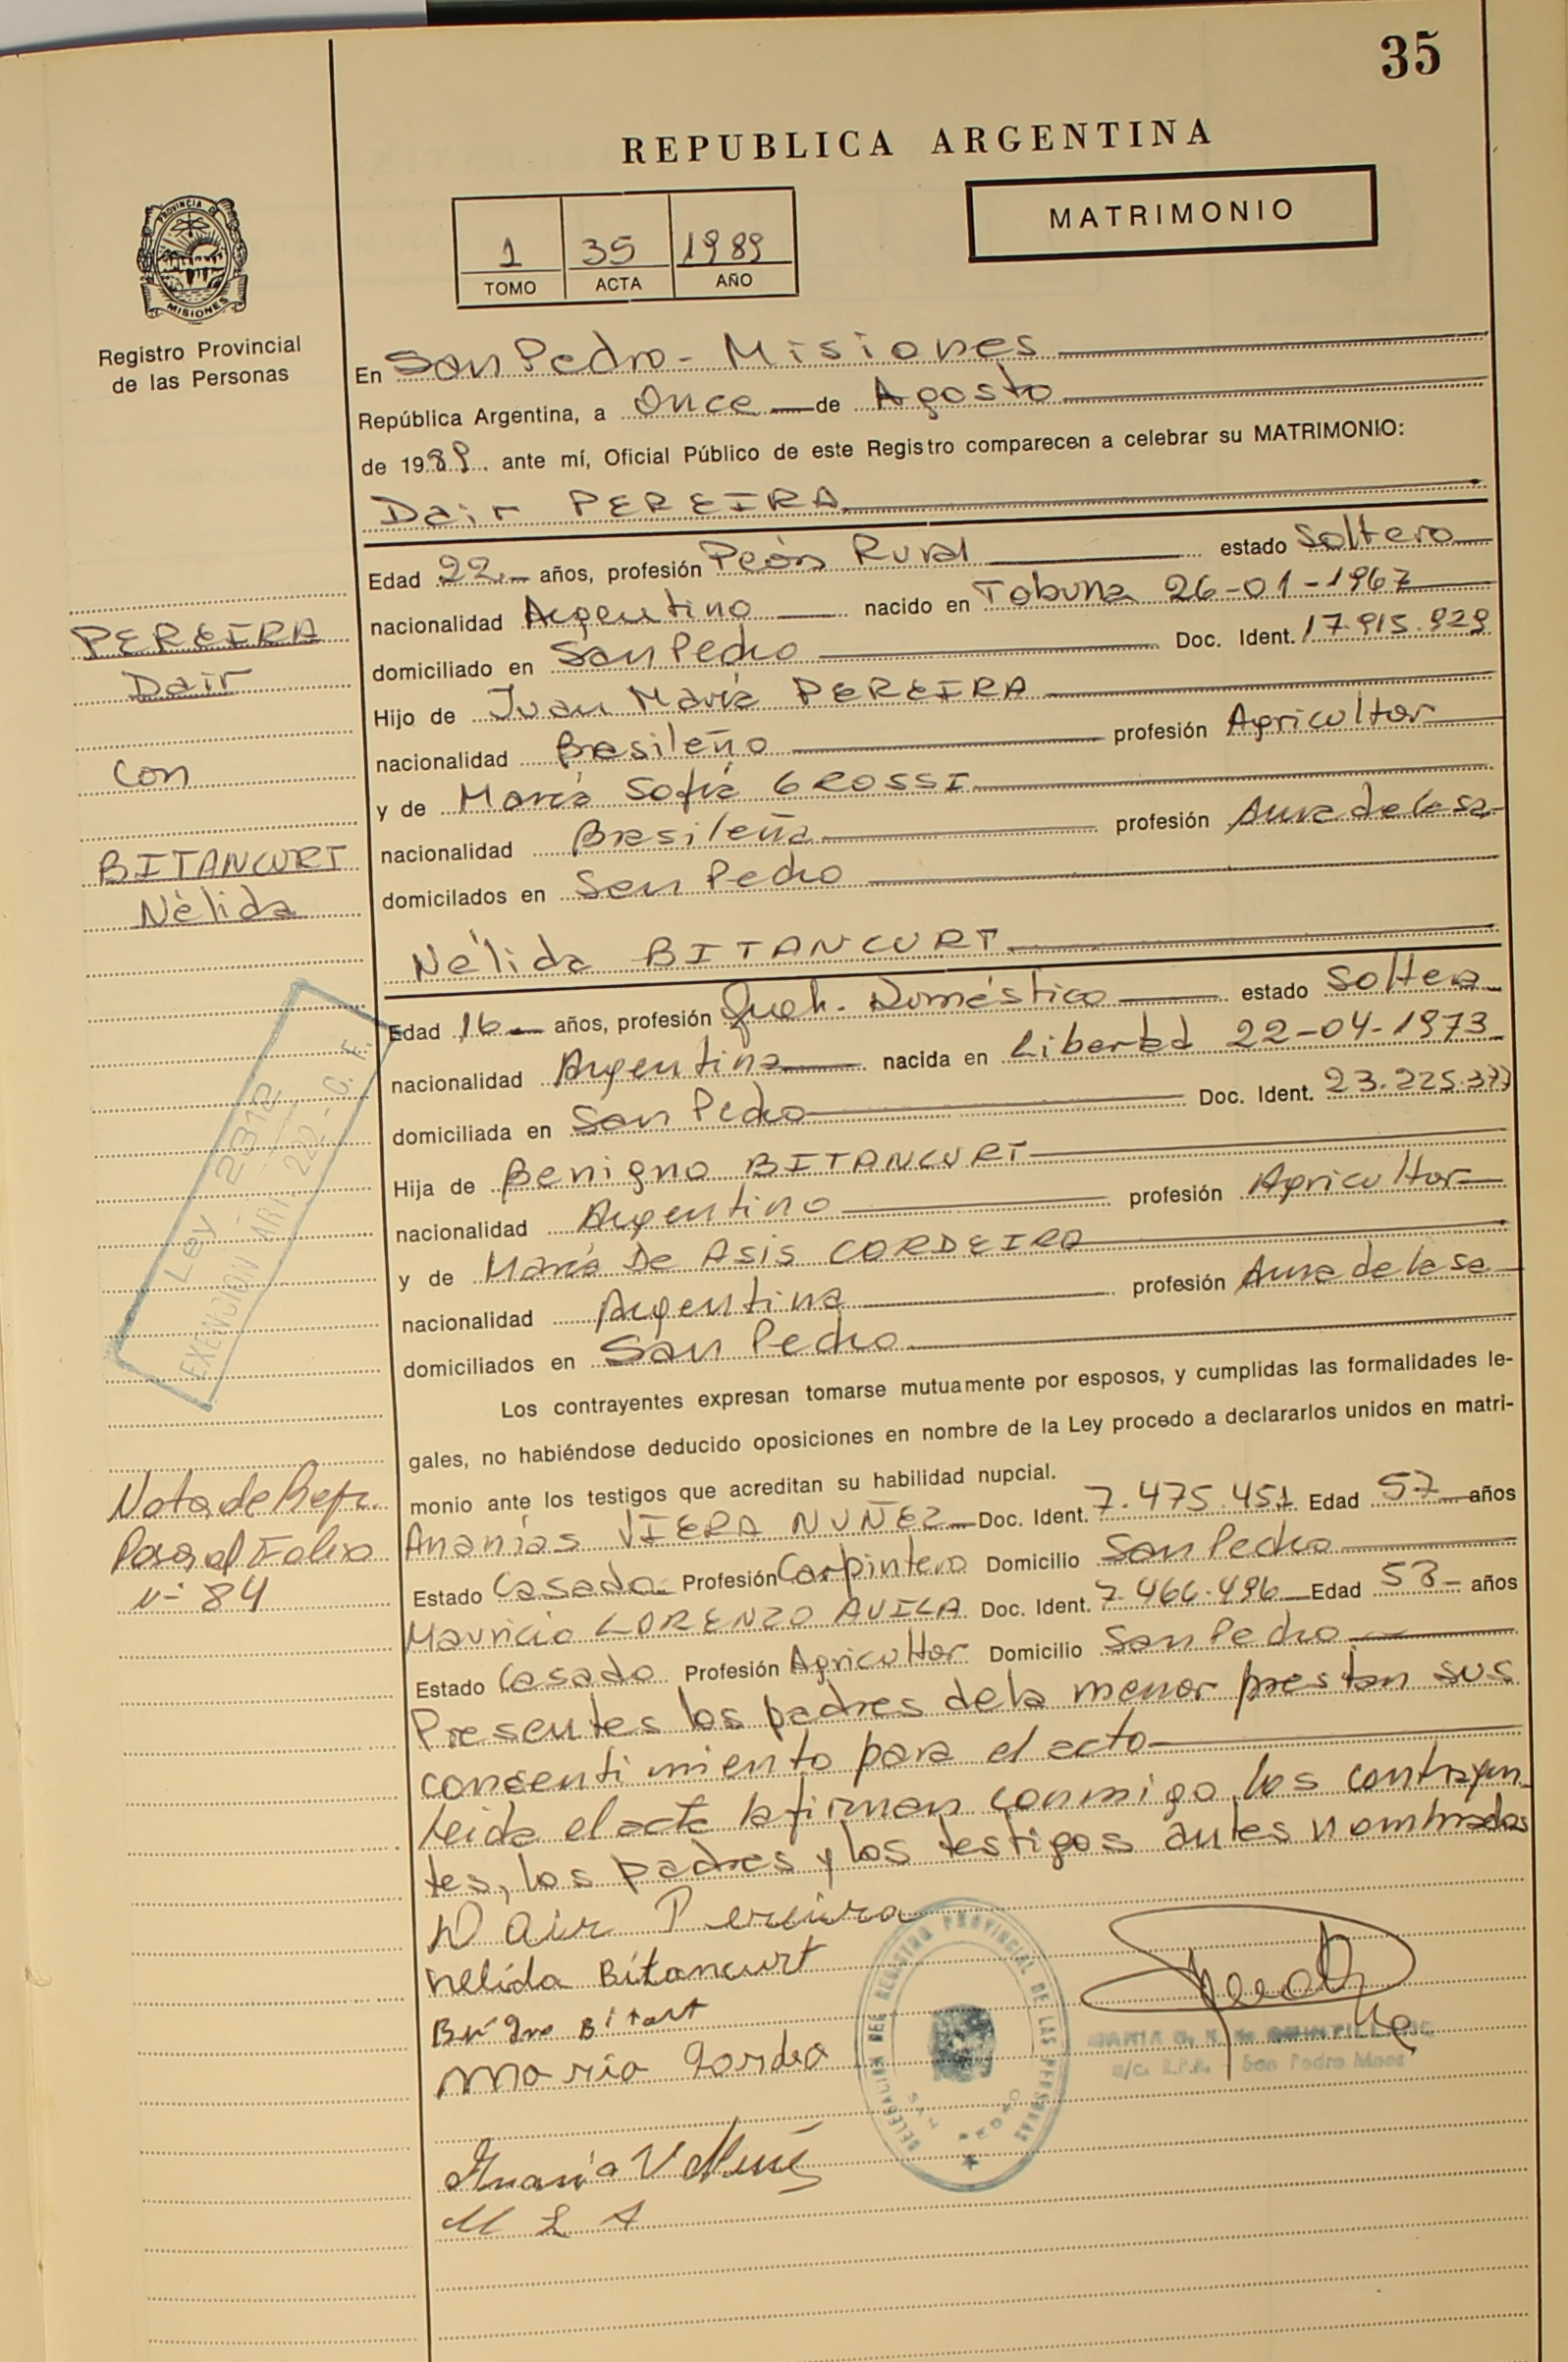 35
REPUBLICA ARGENTINA
MATRIMONIO
1 35 1989
TOMO ACTA AÑO
PROVINCIA DE
MISIONES
Registro Provincial
de las Personas
En San Pedro - Misiones
República Argentina, a Once de Agosto
de 1989. ante mí, Oficial Público de este Registro comparecen a celebrar su MATRIMONIO:
Dair PEREIRA
Edad 22 años, profesión Peón Rural estado Soltero
nacionalidad Argentino nacido en Tobuna 26-01-1967
domiciliado en San Pedro Doc. Ident. 17.915.929
Hijo de Juan María PEREIRA
nacionalidad Brasileño profesión Agricultor
y de María Sofía GROSSI
nacionalidad Brasileña profesión Ama de la sa
domicilados en San Pedro
Nélida BITANCURT
Edad 16 años, profesión Doméstico estado Soltera
nacionalidad Argentina nacida en Libertad 22-04-1973
domiciliada en San Pedro Doc. Ident. 23.225.377
Hija de Benigno BITANCURT
nacionalidad Argentino profesión Agricultor
y de María De Asis CORDEIRO
nacionalidad Argentina profesión Ama de la sa
domiciliados en San Pedro
Los contrayentes expresan tomarse mutuamente por esposos, y cumplidas las formalidades le-
gales, no habiéndose deducido oposiciones en nombre de la Ley procedo a declararlos unidos en matri-
monio ante los testigos que acreditan su habilidad nupcial.
Ananías VIERA NUÑEZ Doc. Ident. 7.475.451 Edad 57 años
Estado Casado Profesión Carpintero Domicilio San Pedro
Mauricio LORENZO AVILA Doc. Ident. 7.466.496 Edad 53 años
Estado Casado Profesión Agricultor Domicilio San Pedro
Presentes los padres dela menor prestan sus
consentimiento para el acto
leida el acta la firman conmigo los contrayen-
tes, los padres y los testigos antes nombrados
Dair Pereira
nelida Bitancurt
maria
M L A
DELEGACION DEL REGISTRO PROVINCIAL DE LAS PERSONAS
SAN PEDRO
MARIA
a/c. R.P.P. San Pedro Mnes
PEREIRA
Dair
Con
BITANCURT
Nélida
Ley 2312
EXENCION ART. 222 - C. F.
Nota de Ref.
Pasa al Folio
nº 84